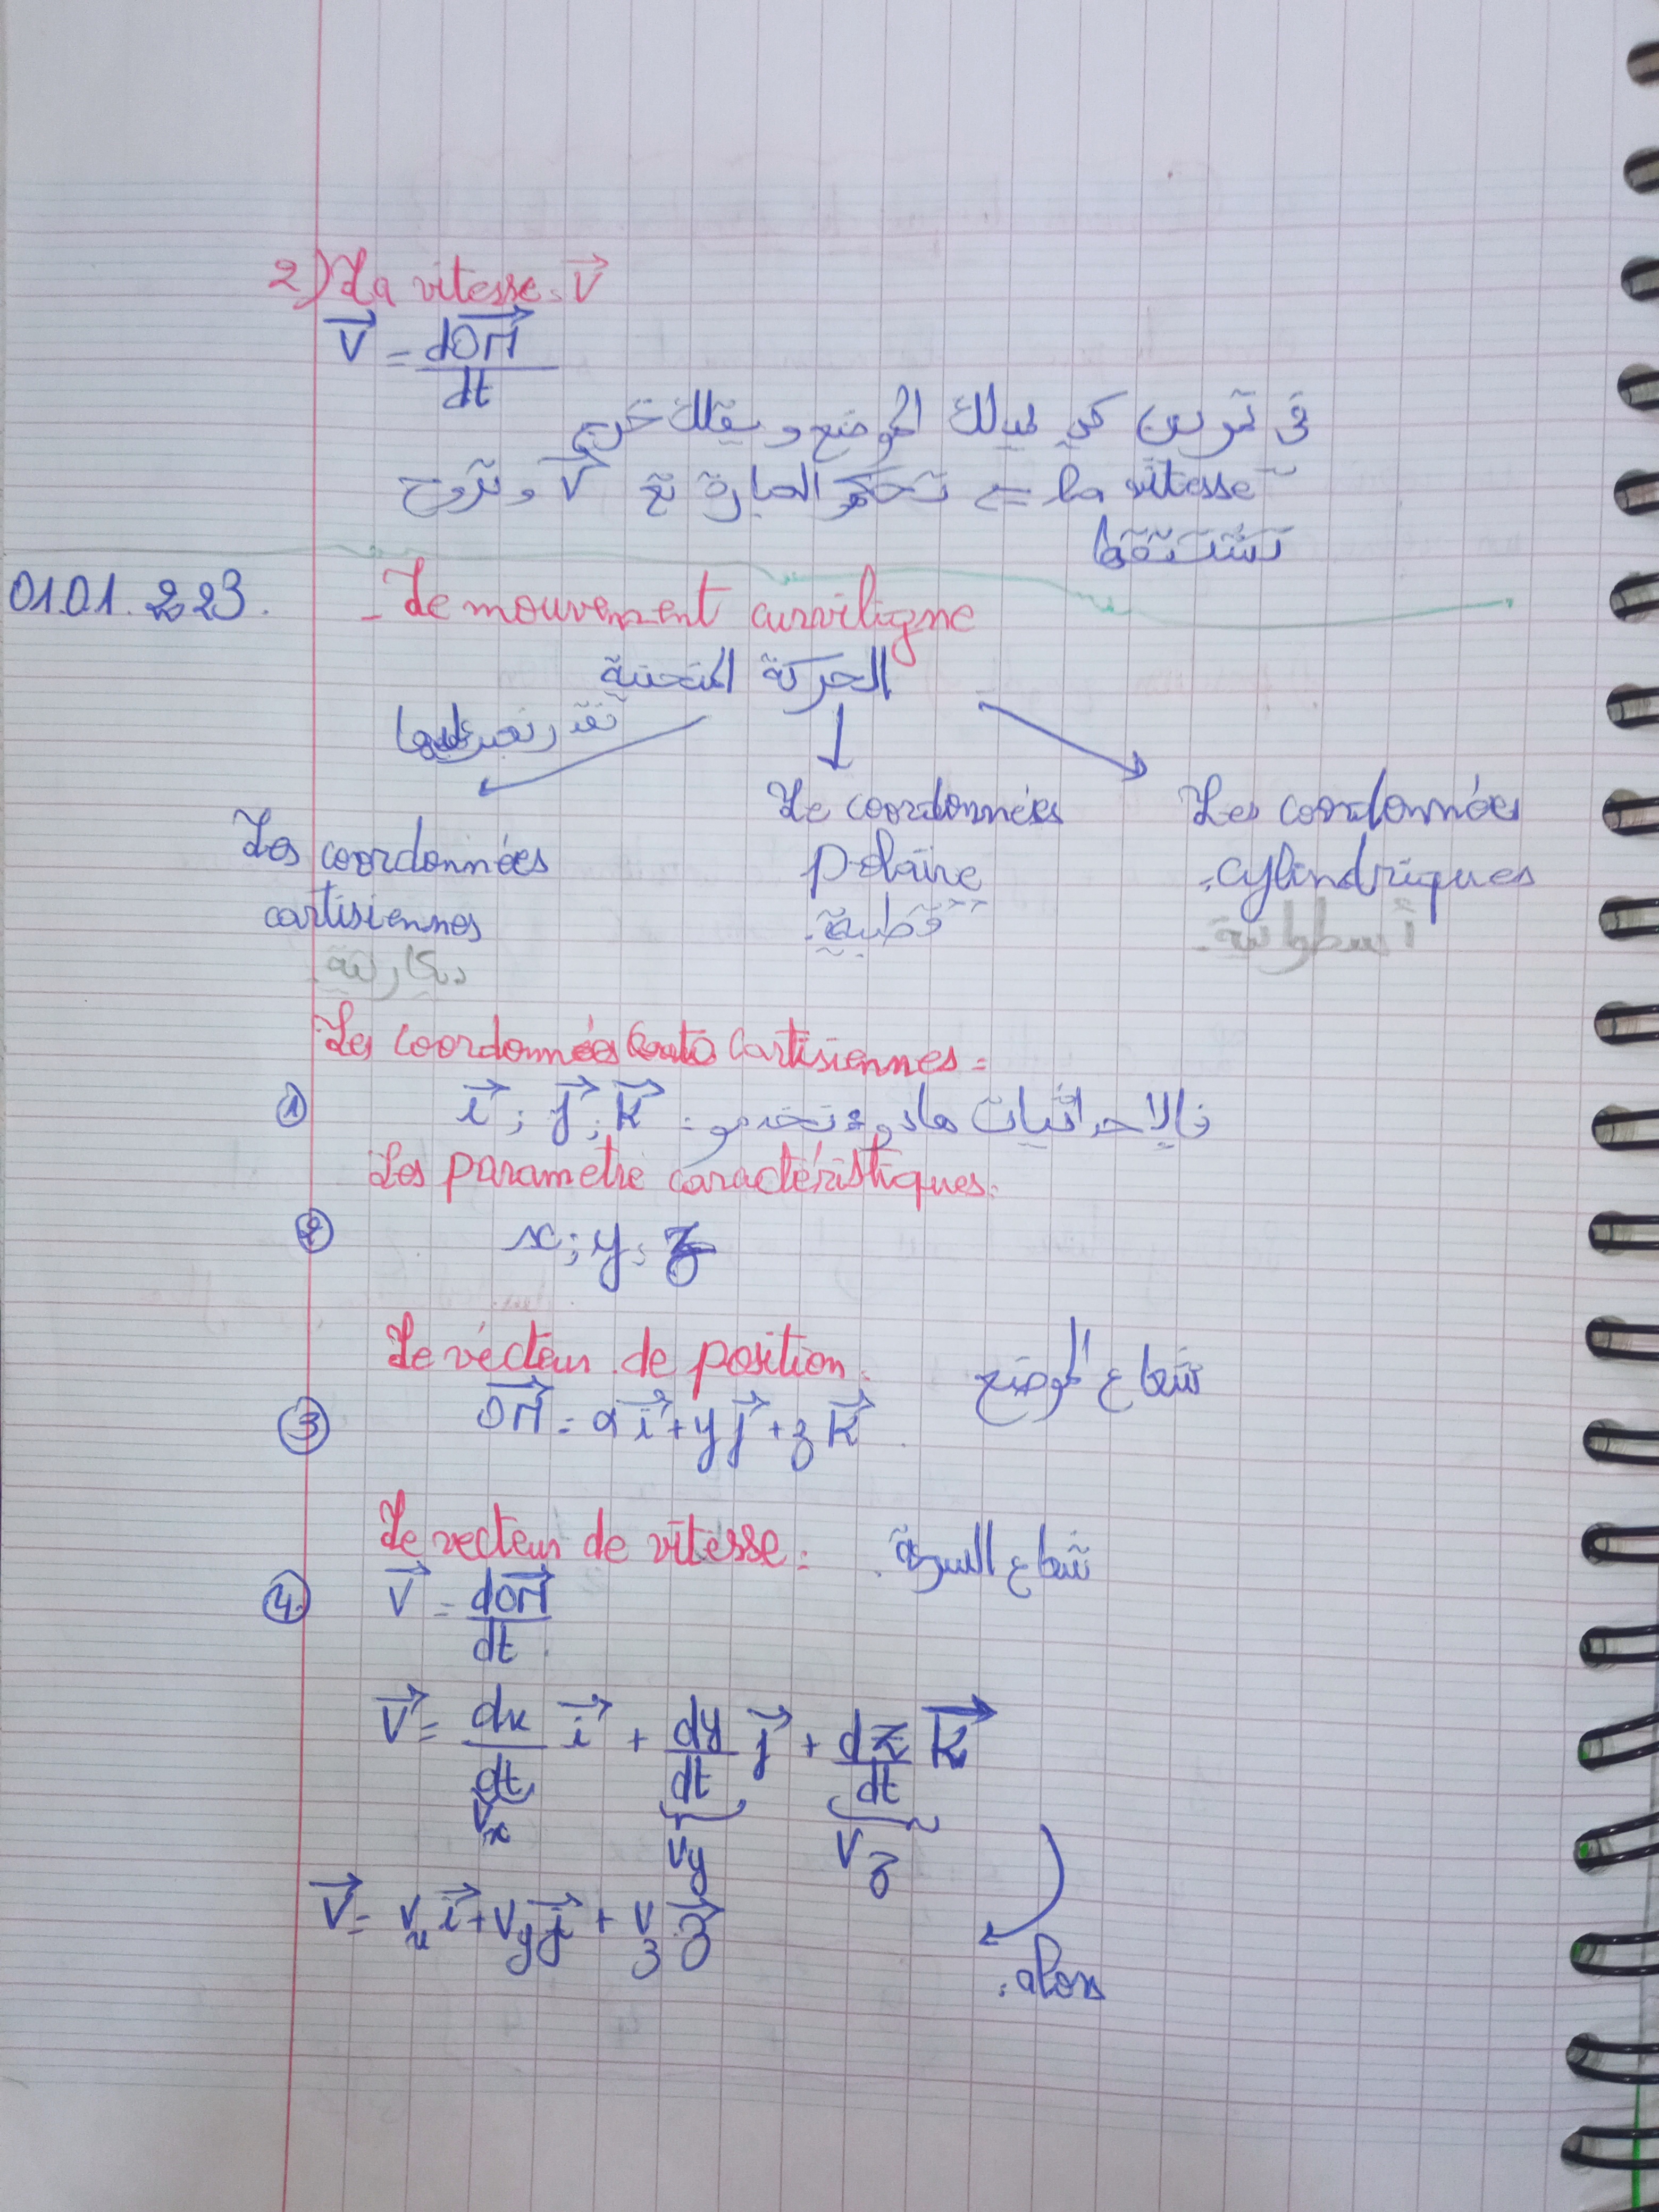 2) La vitesse: V⃗
V⃗ = dOM⃗/dt
في تمرين كي يمدلك الموضع و يقلك تخرج
la vitesse ⇐ تحكم العبارة تع V⃗ و تروح
تشتقها
01.01.2023.
- Le mouvement curviligne
الحركة المنحنية
نقدر نعبر عليها
Les coordonnées
cartisiennes
ديكارتية.
Le coordonnées
polaire
قطبية.
Les coordonnées
cylindriques
أسطوانية.
Les coordonnées cartisiennes =
① i⃗ ; j⃗ ; k⃗ فالإحداثيات هادو نخدمو :
Les parametre caractéristiques:
② x ; y ; z
Le vécteur de position: شعاع الموضع
③ OM⃗ = x i⃗ + y j⃗ + z k⃗
Le vecteur de vitesse: شعاع السرعة.
④ V⃗ = dOM⃗/dt
V⃗ = dx/dt i⃗ + dy/dt j⃗ + dz/dt k⃗
Vx Vy Vz
alors:
V⃗ = Vx i⃗ + Vy j⃗ + Vz z⃗